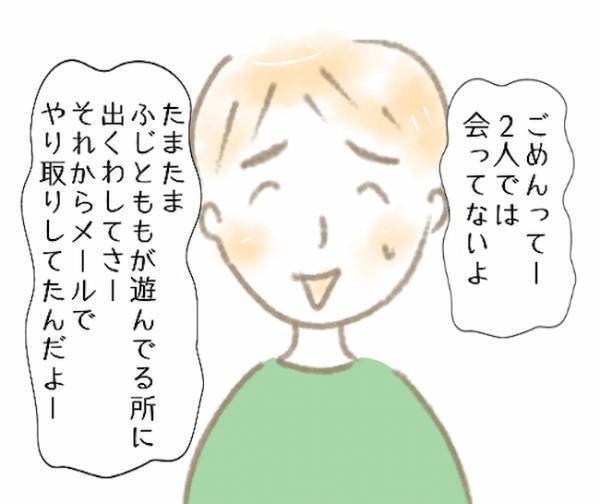 ごめんってー
2人では
会ってないよ
たまたま
ふじとももが遊んでる所に
出くわしてさー
それからメールで
やり取りしてたんだよー